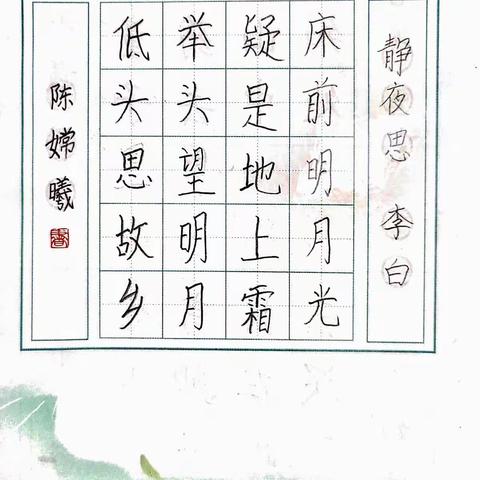 静夜思 李白
床前明月光
疑是地上霜
举头望明月
低头思故乡
陈嫦曦